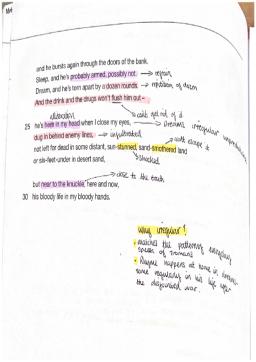 and he bursts again through the doors of the bank.
Sleep, and he's probably armed, possibly not. → repeats
Dream, and he's torn apart by a dozen rounds. → repetition of dozen
And the drink and the drugs won't flush him out –
alliteration → can't get rid of it
25 he's here in my head when I close my eyes, → Dreams irregular
dug in behind enemy lines, → infiltrated
can't escape it
not left for dead in some distant, sun-stunned, sand-smothered land
→ shocked
or six-feet-under in desert sand,
→ close to the truth
but near to the knuckle, here and now,
30 his bloody life in my bloody hands.
Why irregular?
• matches the patterns everyday
speech of
• Rhyme happens at home in
some regularity in his life after
the war.